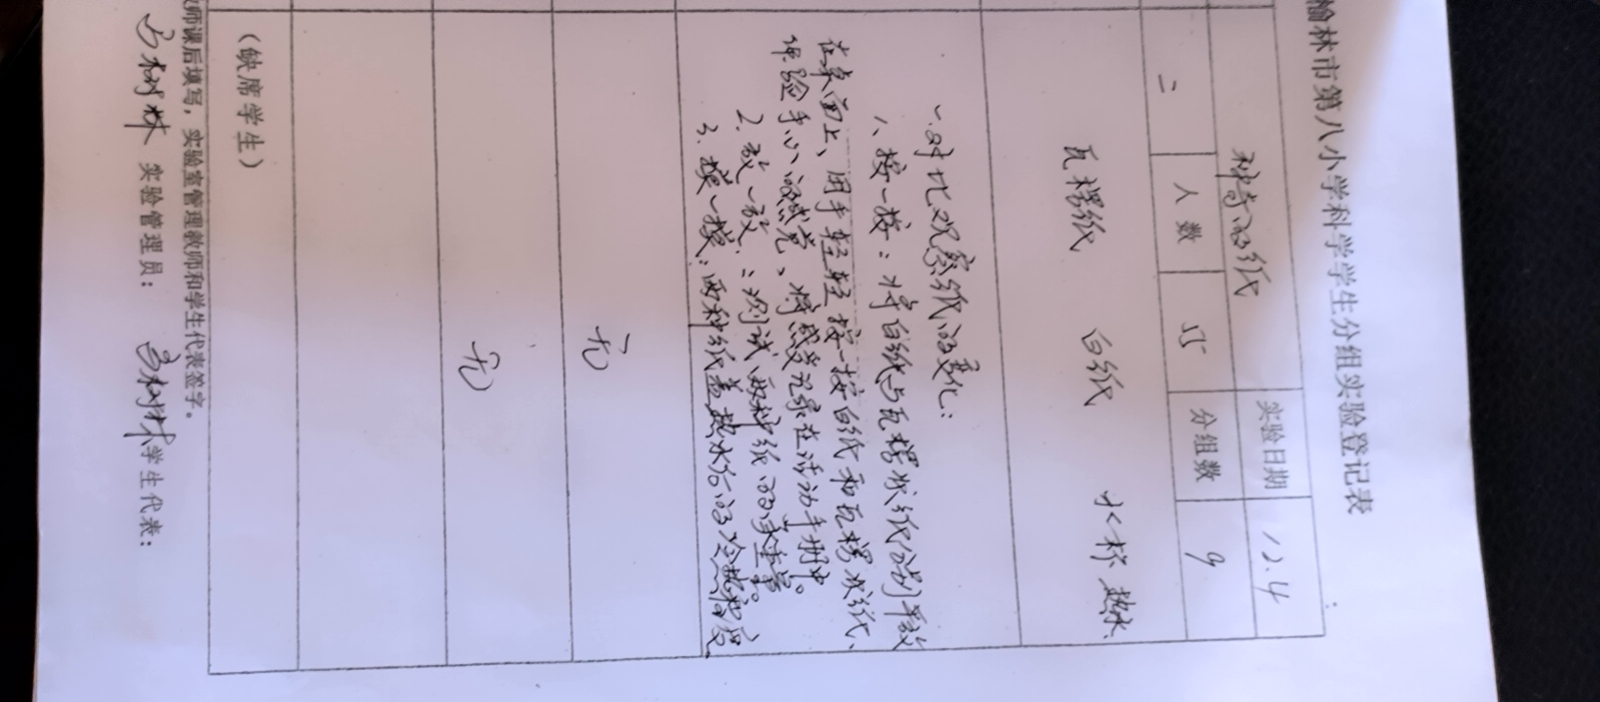 榆林市第八小学科学学生分组实验登记表
神奇的纸 实验日期 12.4
二 人数 55 分组数 9
瓦楞纸 白纸 水杯 热水
一.对比观察纸的变化:
1、按一按:将白纸与瓦楞状纸分别平放
在桌面上、用手轻轻按一按白纸和瓦楞状纸、
体验手心的感觉、将感受记录在活动手册中
2.放一放:测试两种纸的承重量。
3.摸一摸:两种纸盖热水后的冷热程度
无
无
(缺席学生)
师课后填写,实验室管理教师和学生代表签字。
实验管理员: 学生代表: